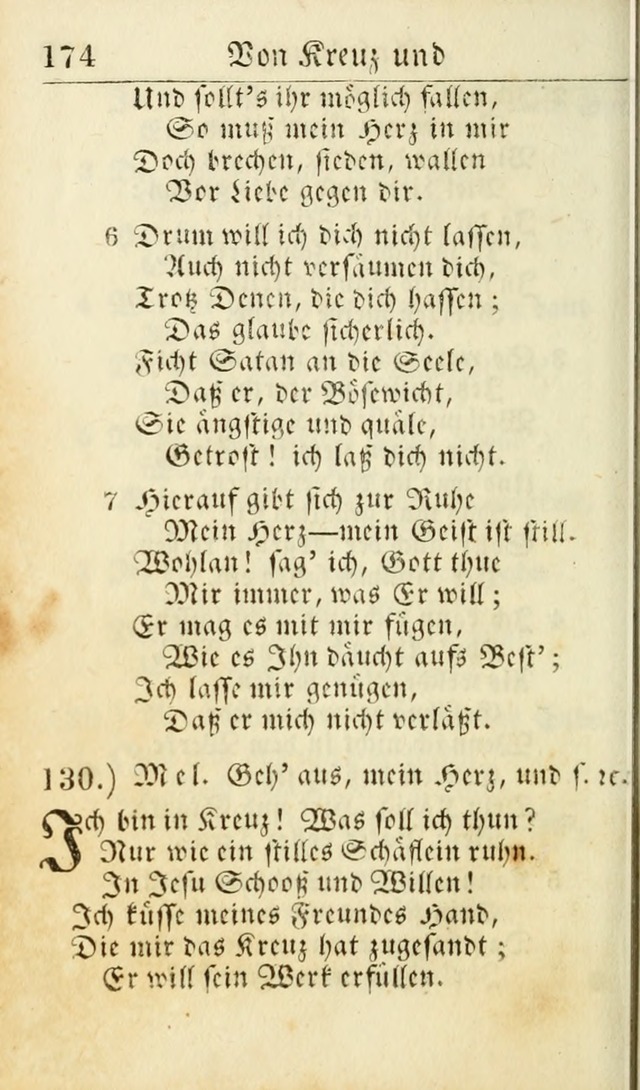 174 Von Kreuz und
Und sollt's ihr möglich fallen,
So muß mein Herz in mir
Doch brechen, sieden, wallen
Vor Liebe gegen dir.
6 Drum will ich dich nicht lassen,
Auch nicht versäumen dich,
Trotz Denen, die dich hassen;
Das glaube sicherlich.
Ficht Satan an die Seele,
Daß er, der Bösewicht,
Sie ängstige und quäle,
Getrost! ich laß dich nicht.
7 Hierauf gibt sich zur Ruhe
Mein Herz—mein Geist ist still.
Wohlan! sag' ich, Gott thue
Mir immer, was Er will;
Er mag es mit mir fügen,
Wie es Ihn däucht aufs Best';
Ich lasse mir genügen,
Daß er mich nicht verläßt.
130.) Mel. Geh' aus, mein Herz, und s. ꝛc.
Ich bin in Kreuz! Was soll ich thun?
Nur wie ein stilles Schäflein ruhn.
In Jesu Schooß und Willen!
Ich küsse meines Freundes Hand,
Die mir das Kreuz hat zugesandt;
Er will sein Werk erfüllen.